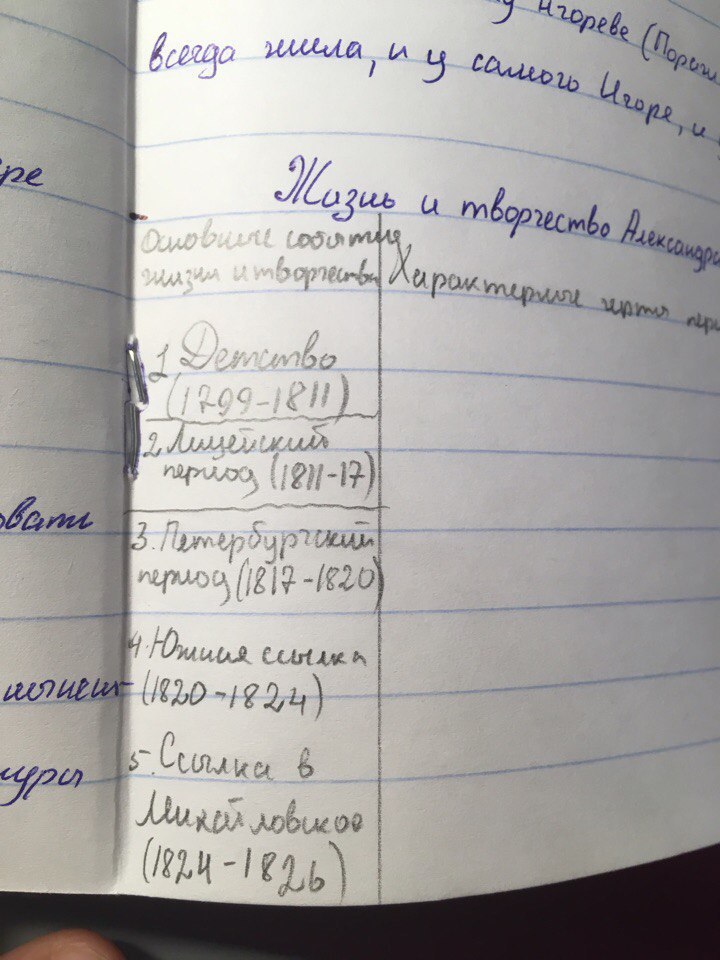 Игореве
всегда жила, и у самого Игоре, и
Жизнь и творчество Александра
Основные события
жизни и творчества
Характерные черты
1. Детство
(1799-1811)
2. Лицейский
период (1811-17)
3. Петербургский
период (1817-1820)
4. Южная ссылка
(1820-1824)
5. Ссылка в
Михайловское
(1824-1826)